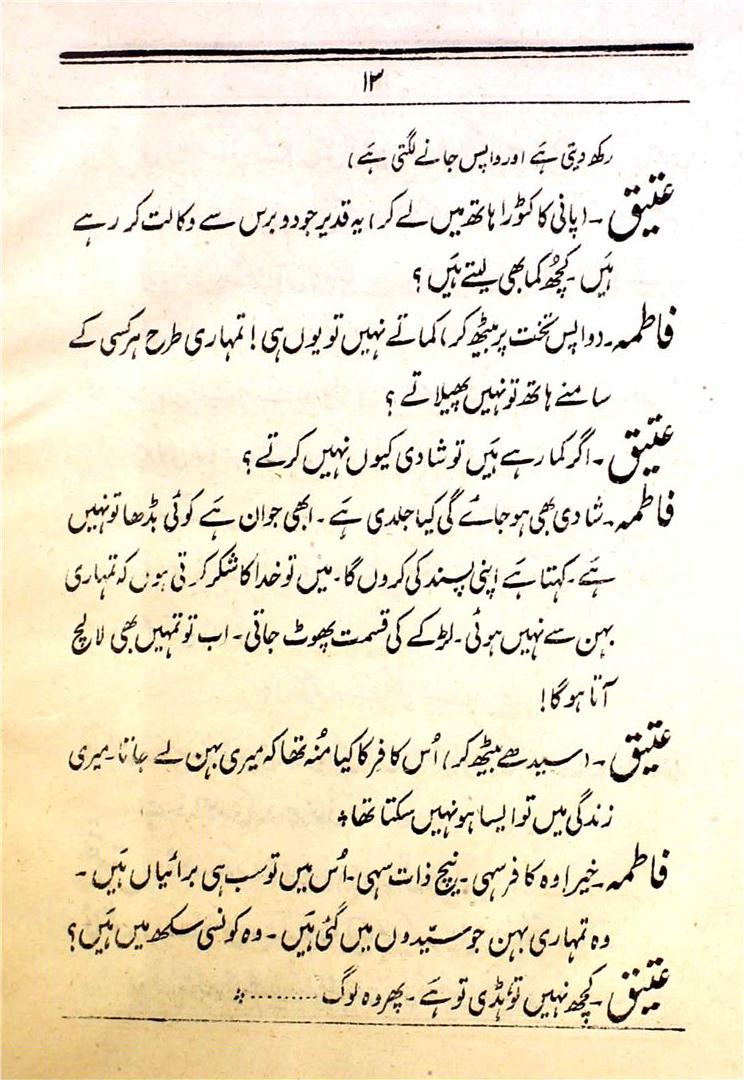 ۱۳
رکھ دیتی ہے اور واپس جانے لگتی ہے)
عتیق۔ (پانی کا کٹورا ہاتھ میں لے کر) یہ قدیر جو دو برس سے وکالت کر رہے
ہیں۔ کچھ کما بھی لیتے ہیں؟
فاطمہ۔ (واپس تخت پر بیٹھ کر) کماتے نہیں تو یوں ہی! تمہاری طرح ہر کسی کے
سامنے ہاتھ تو نہیں پھیلاتے؟
عتیق۔ اگر کما رہے ہیں تو شادی کیوں نہیں کرتے؟
فاطمہ۔ شادی بھی ہو جائے گی کیا جلدی ہے۔ ابھی جوان ہے کوئی بڈھا تو نہیں
ہے۔ کہتا ہے اپنی پسند کی کروں گا۔ میں تو خدا کا شکر کرتی ہوں کہ تمہاری
بہن سے نہیں ہوئی۔ لڑکے کی قسمت پھوٹ جاتی۔ اب تو تمہیں بھی لالچ
آتا ہو گا!
عتیق۔ (سیدھے بیٹھ کر) اُس کافر کا کیا مُنہ تھا کہ میری بہن لے جاتا۔ میری
زندگی میں تو ایسا ہو نہیں سکتا تھا٭
فاطمہ۔ خیر! وہ کافر سہی۔ نیچ ذات سہی۔ اُس میں تو سب ہی برائیاں ہیں۔
وہ تمہاری بہن جو سیّدوں میں گئی ہیں۔ وہ کونسی سکھ میں ہیں؟
عتیق۔ کچھ نہیں تو ہڈی تو ہے۔ پھر وہ لوگ ..........٭